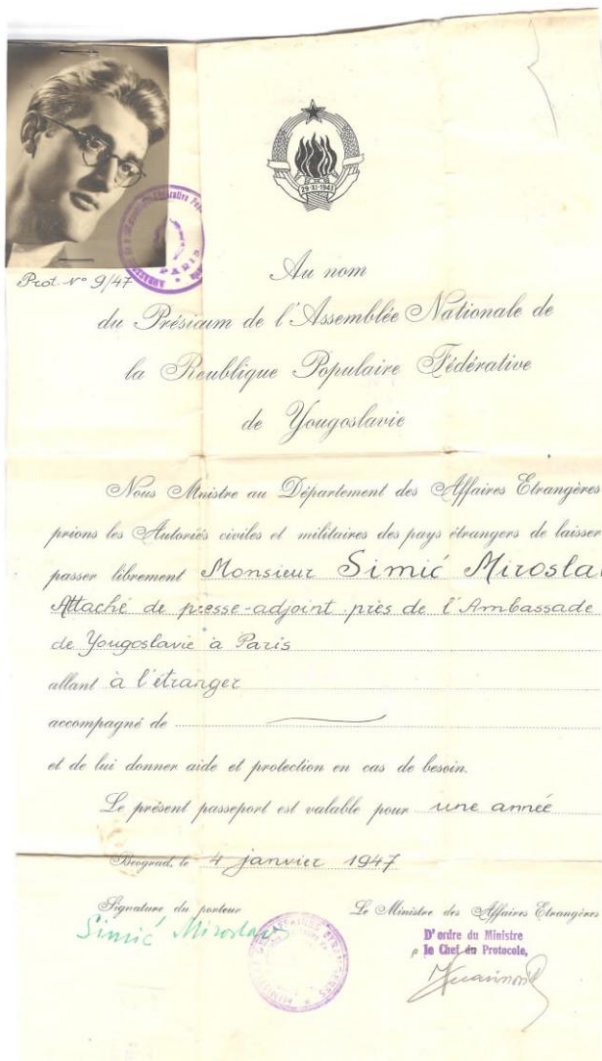 29·XI·1943
Prot. No 9/47
Au nom
du Présidium de l'Assemblée Nationale de
la République Populaire Fédérative
de Yougoslavie
Nous Ministre au Département des Affaires Etrangères
prions les Autoriés civiles et militaires des pays étrangers de laisser
passer librement Monsieur Simić Mirosla
Attaché de presse-adjoint près de l'Ambassade
de Yougoslavie à Paris
allant à l'étranger
accompagné de
et de lui donner aide et protection en cas de besoin.
Le présent passeport est valable pour une année
Beograd, le 4 janvier 1947
Signature du porteur
Le Ministre des Affaires Etrangères
Simić Miroslav
D'ordre du Ministre
le Chef du Protocole,